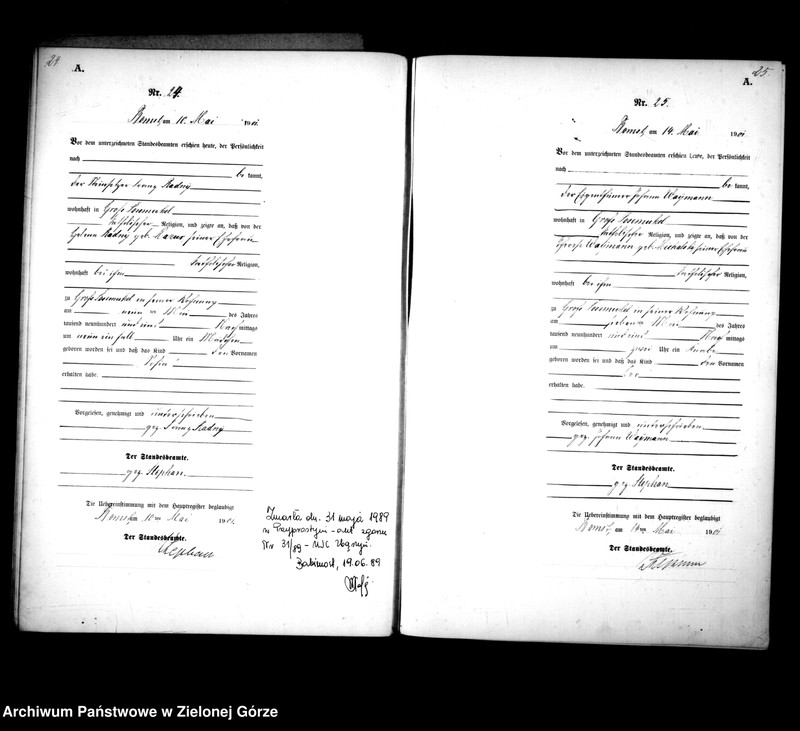 24
A.
Nr. 24.
am 10. Mai 1901
Vor dem unterzeichneten Standesbeamten erschien heute, der Persönlichkeit
nach
be kannt,
der Franz Radny
wohnhaft in Groß
katholischer Religion, und zeigte an, daß von der
Radny geb. seiner Ehefrau
katholischer Religion,
wohnhaft bei ihm
zu Groß in seiner Wohnung
am Mai des Jahres
tausend neunhundert und eins Nachmittags
um neun ein halb Uhr ein Mädchen
geboren worden sei und daß das Kind den Vornamen
erhalten habe.
Vorgelesen, genehmigt und unterschrieben
gez. Franz Radny
Der Standesbeamte.
gez. Stephan.
Die Uebereinstimmung mit dem Hauptregister beglaubigt
am 10ten Mai 1901.
Der Standesbeamte.
Stephan
Zmarła dn. 31 maja 1989
w Przyprostyni - akt zgonu
Nr 31/89 - USC Zbąszyń.
Babimost, 19.06.89
25.
A.
Nr. 25.
am 14. Mai 1901
Vor dem unterzeichneten Standesbeamten erschien heute, der Persönlichkeit
nach
be kannt,
der Eigenthümer Johann Waßmann
wohnhaft in Groß
katholischer Religion, und zeigte an, daß von der
Waßmann geb. seiner Ehefrau
katholischer Religion,
wohnhaft bei ihm
zu Groß in seiner Wohnung
am Mai des Jahres
tausend neunhundert und eins Nachmittags
um zwei Uhr ein Knabe
geboren worden sei und daß das Kind den Vornamen
erhalten habe.
Vorgelesen, genehmigt und unterschrieben.
gez. Johann Waßmann
Der Standesbeamte.
gez. Stephan
Die Uebereinstimmung mit dem Hauptregister beglaubigt
am 14ten Mai 1901
Der Standesbeamte.
Stephan
Archiwum Państwowe w Zielonej Górze